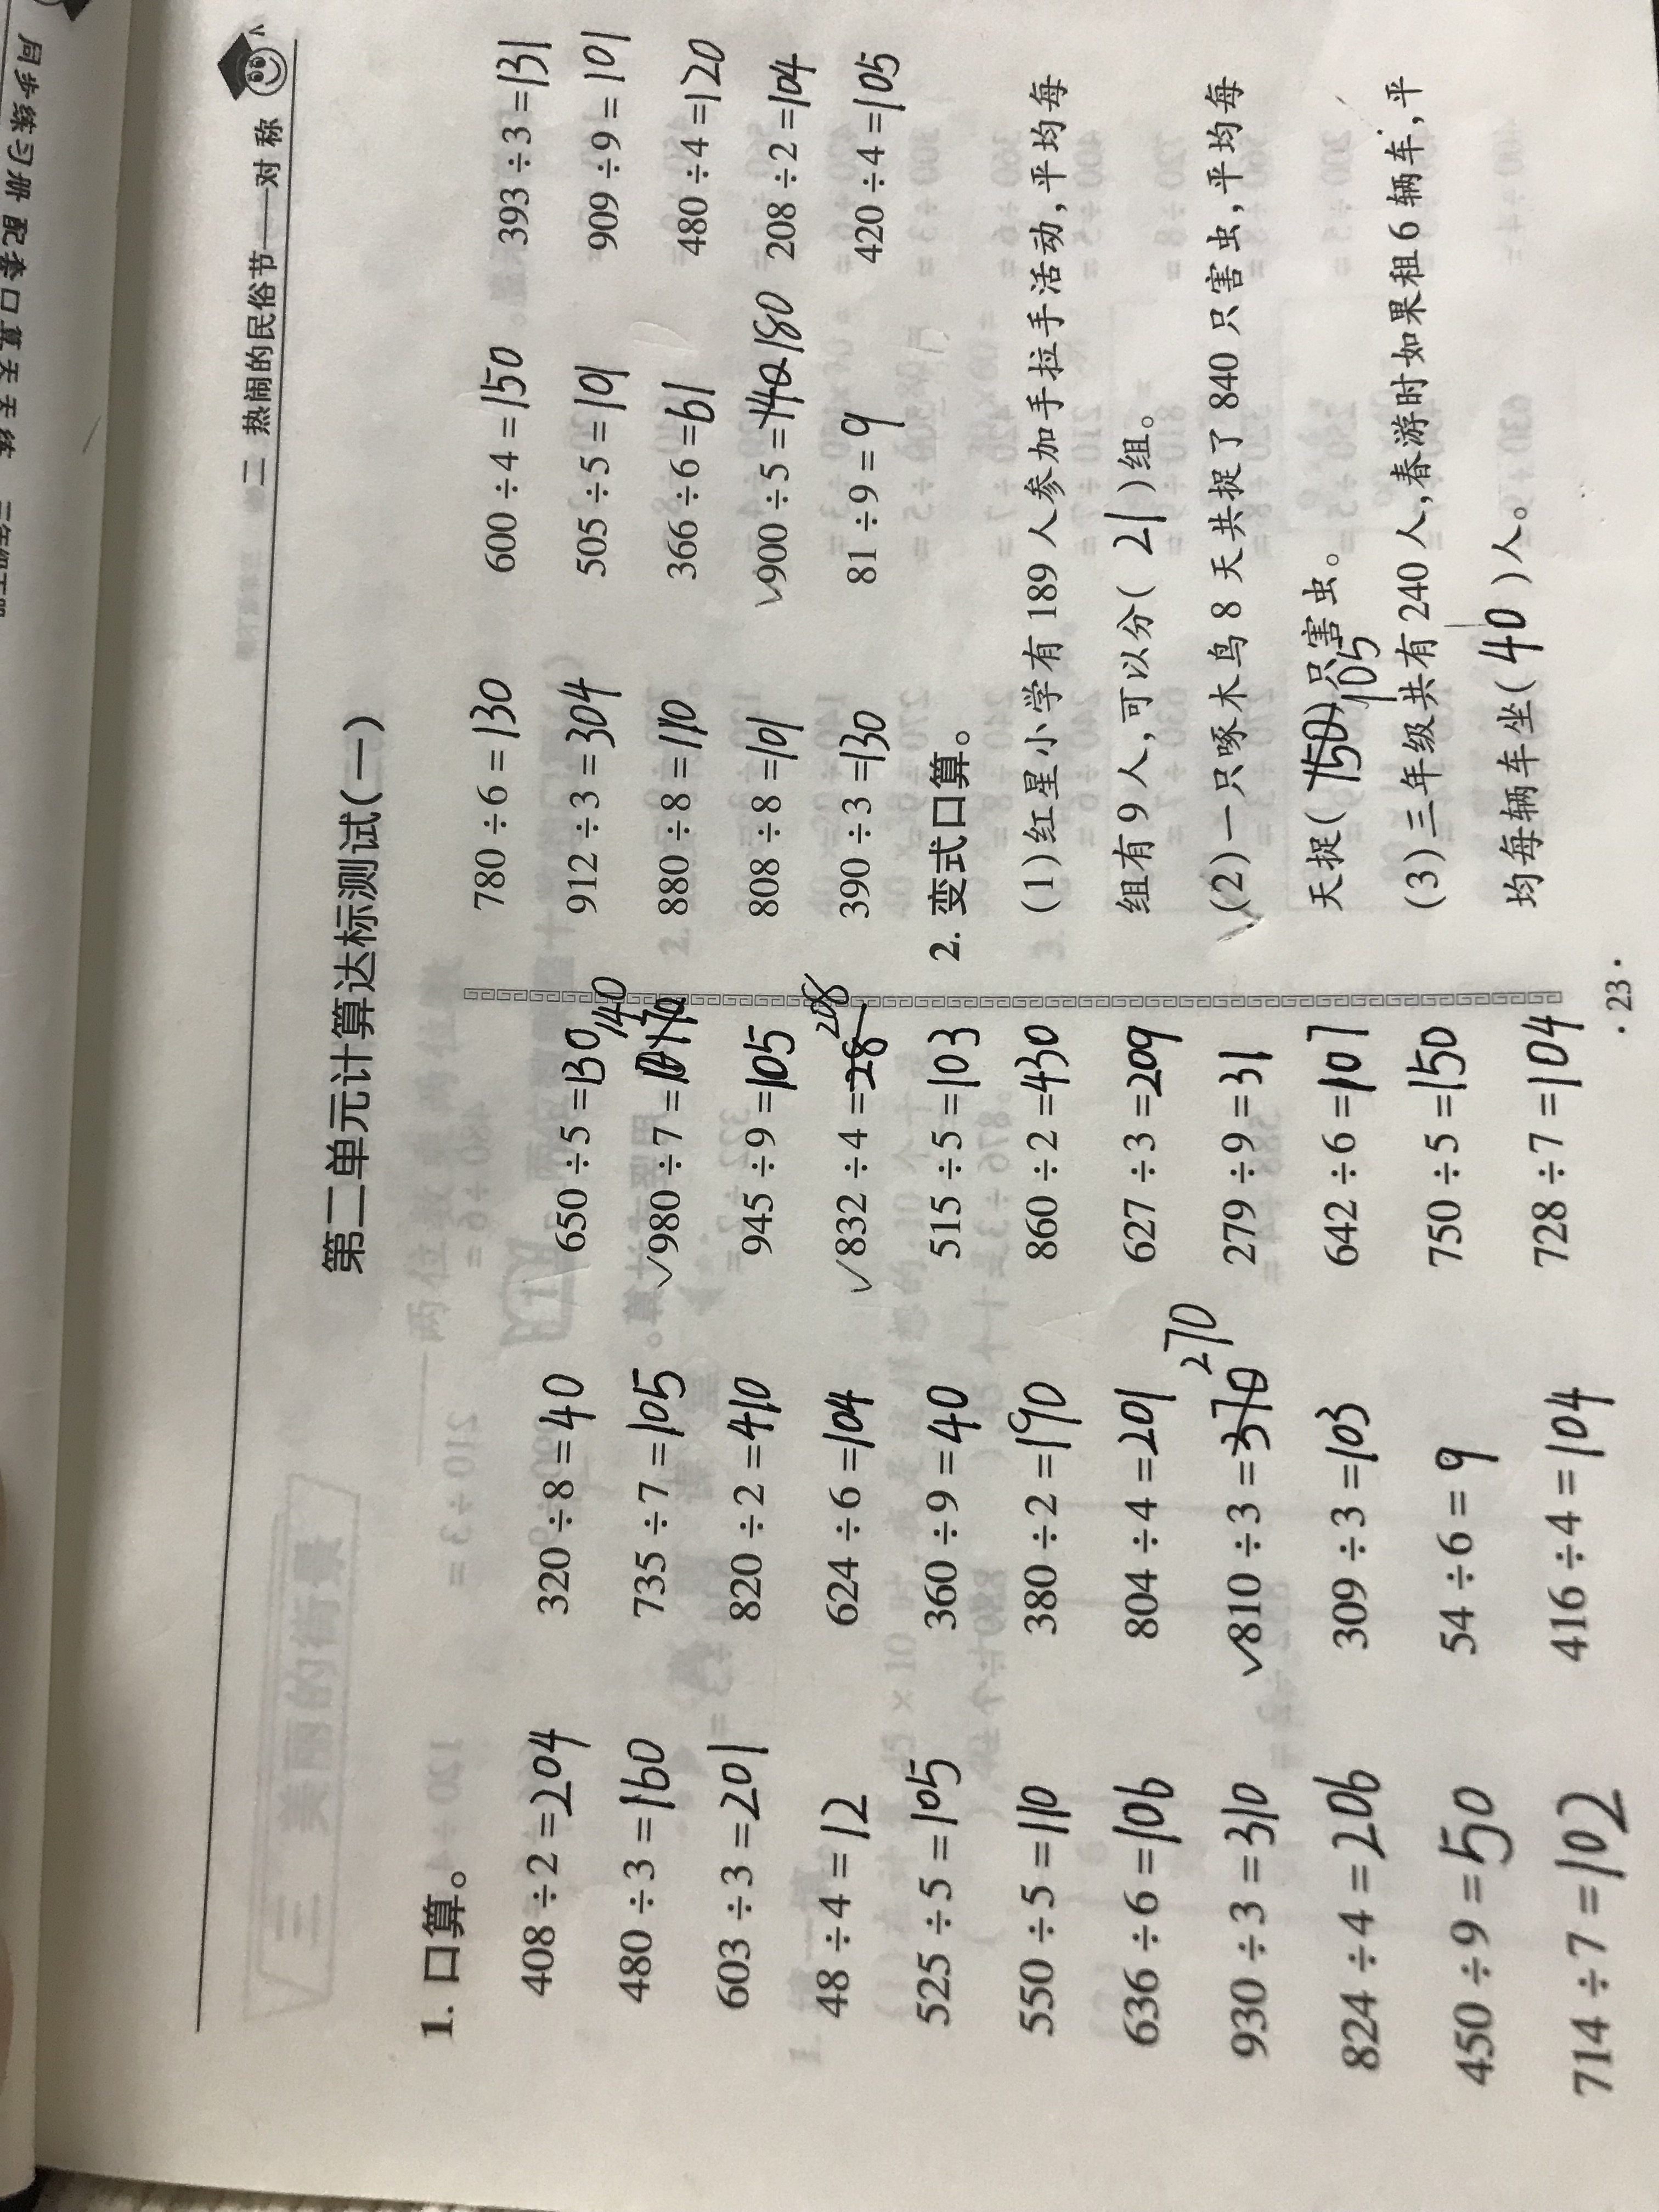 二 热闹的民俗节——对 称
第二单元计算达标测试(一)
1. 口算。
408÷2=204 320÷8=40 650÷5=130
480÷3=160 735÷7=105 ✓980÷7= 140
603÷3=201 820÷2=410 945÷9=105
48÷4=12 624÷6=104 ✓832÷4=28 208
525÷5=105 360÷9=40 515÷5=103
550÷5=110 380÷2=190 860÷2=430
636÷6=106 804÷4=201 627÷3=209
930÷3=310 ✓810÷3=370 270 279÷9=31
824÷4=206 309÷3=103 642÷6=107
450÷9=50 54÷6=9 750÷5=150
714÷7=102 416÷4=104 728÷7=104
780÷6=130 600÷4=150 393÷3=131
912÷3=304 505÷5=101 909÷9=101
880÷8=110 366÷6=61 480÷4=120
808÷8=101 ✓900÷5=140 180 208÷2=104
390÷3=130 81÷9=9 420÷4=105
2. 变式口算。
(1)红星小学有 189 人参加手拉手活动,平均每
组有 9 人,可以分( 21 )组。
✓(2)一只啄木鸟 8 天共捉了 840 只害虫,平均每
天捉( 150 )只害虫。
105
(3)三年级共有 240 人,春游时如果租 6 辆车,平
均每辆车坐( 40 )人。
· 23 ·